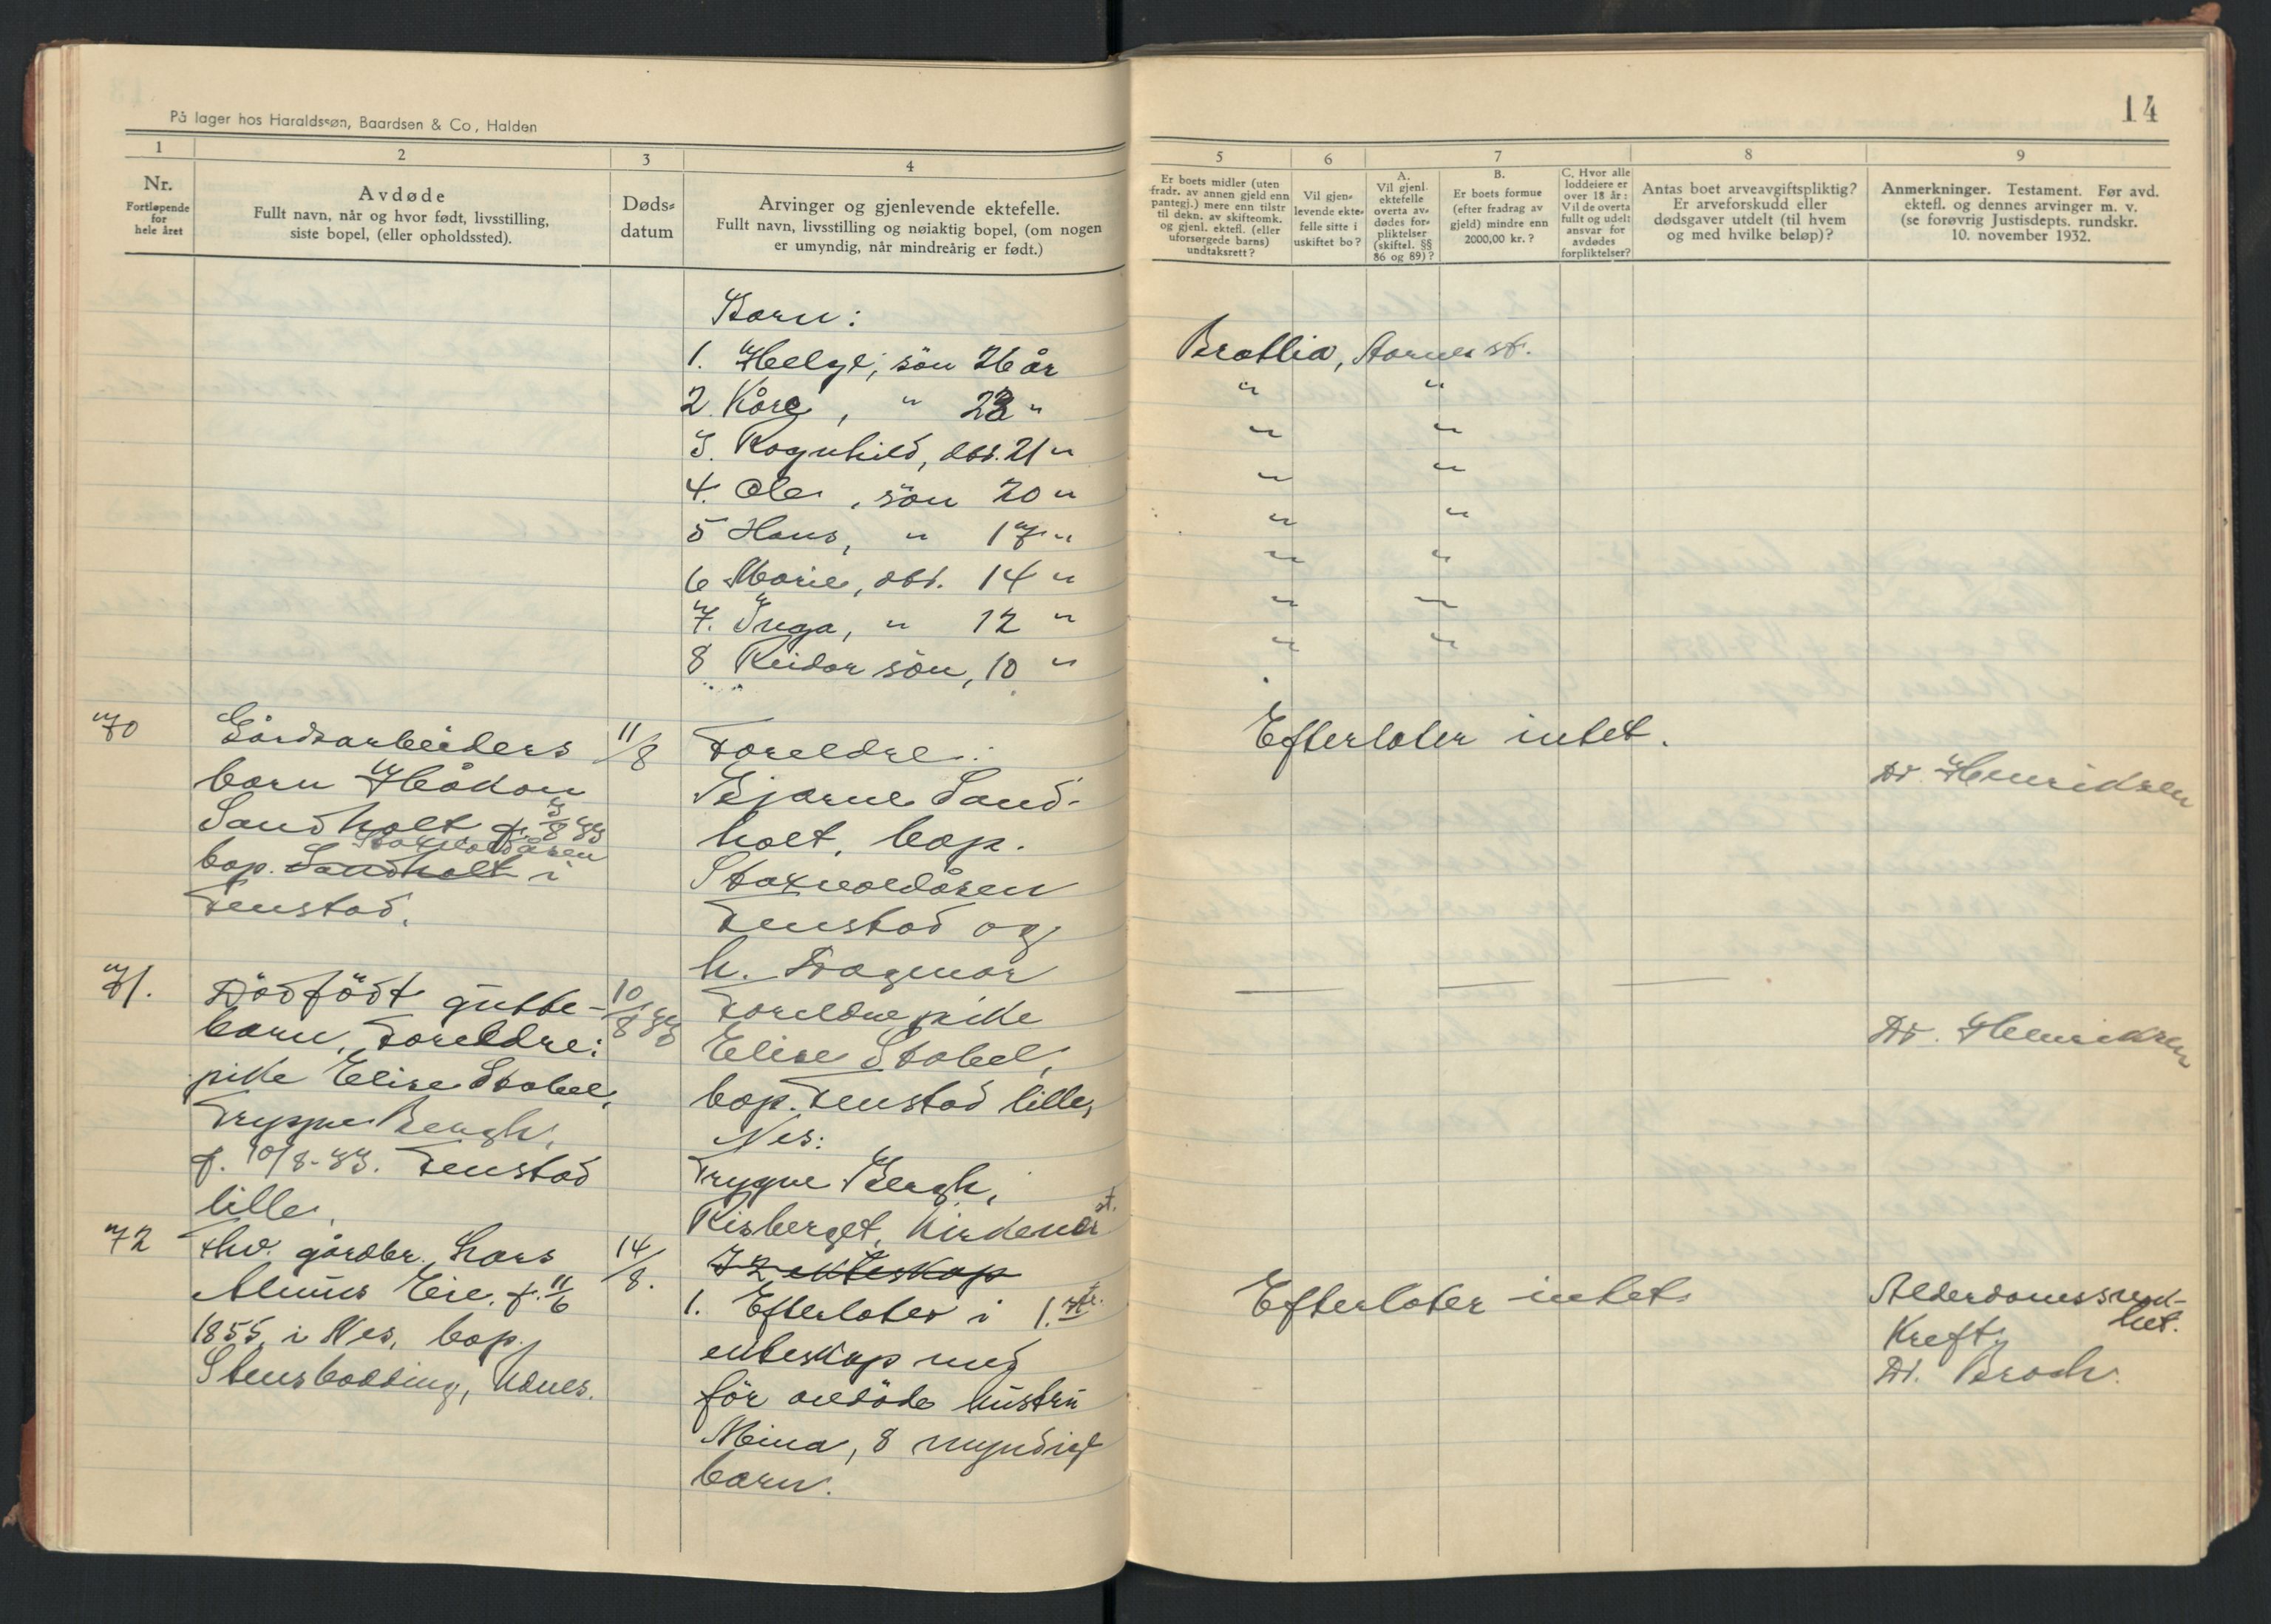 På lager hos Haraldssøn, Baardsen & Co, Halden
1
2
3
4
Nr.
Fortløpende
for
hele året
Avdøde
Fullt navn, når og hvor født, livsstilling,
siste bopel, (eller opholdssted).
Døds-
datum
Arvinger og gjenlevende ektefelle.
Fullt navn, livsstilling og nøiaktig bopel, (om nogen
er umyndig, når mindreårig er født.)
Barn:
1. Helge, sön 26 år
2. Kåre, " 23 "
3. Ragnhild, dtr. 21 "
4. Ole, sön 20 "
5 Hans, " 17 "
6 Marie, dtr. 14 "
7. Inga, " 12 "
8 Reidar sön, 10 "
70
Gårdsarbeiders
barn Håkon
Sandholt f. 3/8 33
bop. Sandholt i
Fenstad.
11/8
Foreldre:
Bjarne Sand-
holt, bop.
Fenstad og
h. Dagmar
71.
Dödfödt gutte-
barn, Foreldre:
pike Elise Stabel,
Trygve Bergh,
f. 10/8-33. Fenstad
lille.
10/8 33
Foreldre pike
Elise Stabel,
bop. Fenstad lille,
Nes:
Trygve Bergh,
Risberget, Kirkenær st.
72
fhv. gårdbr. Lars
Eie. f. 11/6
1855, i Nes, bop.
Udnes.
14/8.
72 ekteskap
1. Efterlater i 1.
ekteskap med
för avdöde hustru
Mina, 8 myndige
barn.
14
5
6
7
8
9
Er boets midler (uten
fradr. av annen gjeld enn
pantegj.) mere enn tilstr
til dekn. av skifteomk.
og gjenl. ektefl. (eller
uforsørgede barns)
undtaksrett?
Vil gjen-
levende ekte-
felle sitte i
uskiftet bo?
A.
Vil gjenl.
ektefelle
overta av-
dødes for-
pliktelser
(skiftel. §§
86 og 89)?
B.
Er boets formue
(efter fradrag av
gjeld) mindre enn
2000,00 kr.?
C. Hvor alle
loddeiere er
over 18 år:
Vil de overta
fullt og udelt
ansvar for
avdødes
forpliktelser?
Antas boet arveavgiftspliktig?
Er arveforskudd eller
dødsgaver utdelt (til hvem
og med hvilke beløp)?
Anmerkninger. Testament. Før avd.
ektefl. og dennes arvinger m. v.
(se forøvrig Justisdepts. rundskr.
10. november 1932.
Brattlia, Aarnes st.
" "
" "
" "
" "
" "
" "
" "
Efterlater intet.
Dr. Henriksen
Dr. Henriksen
Efterlater intet.
Kreft,
Dr. Broch.